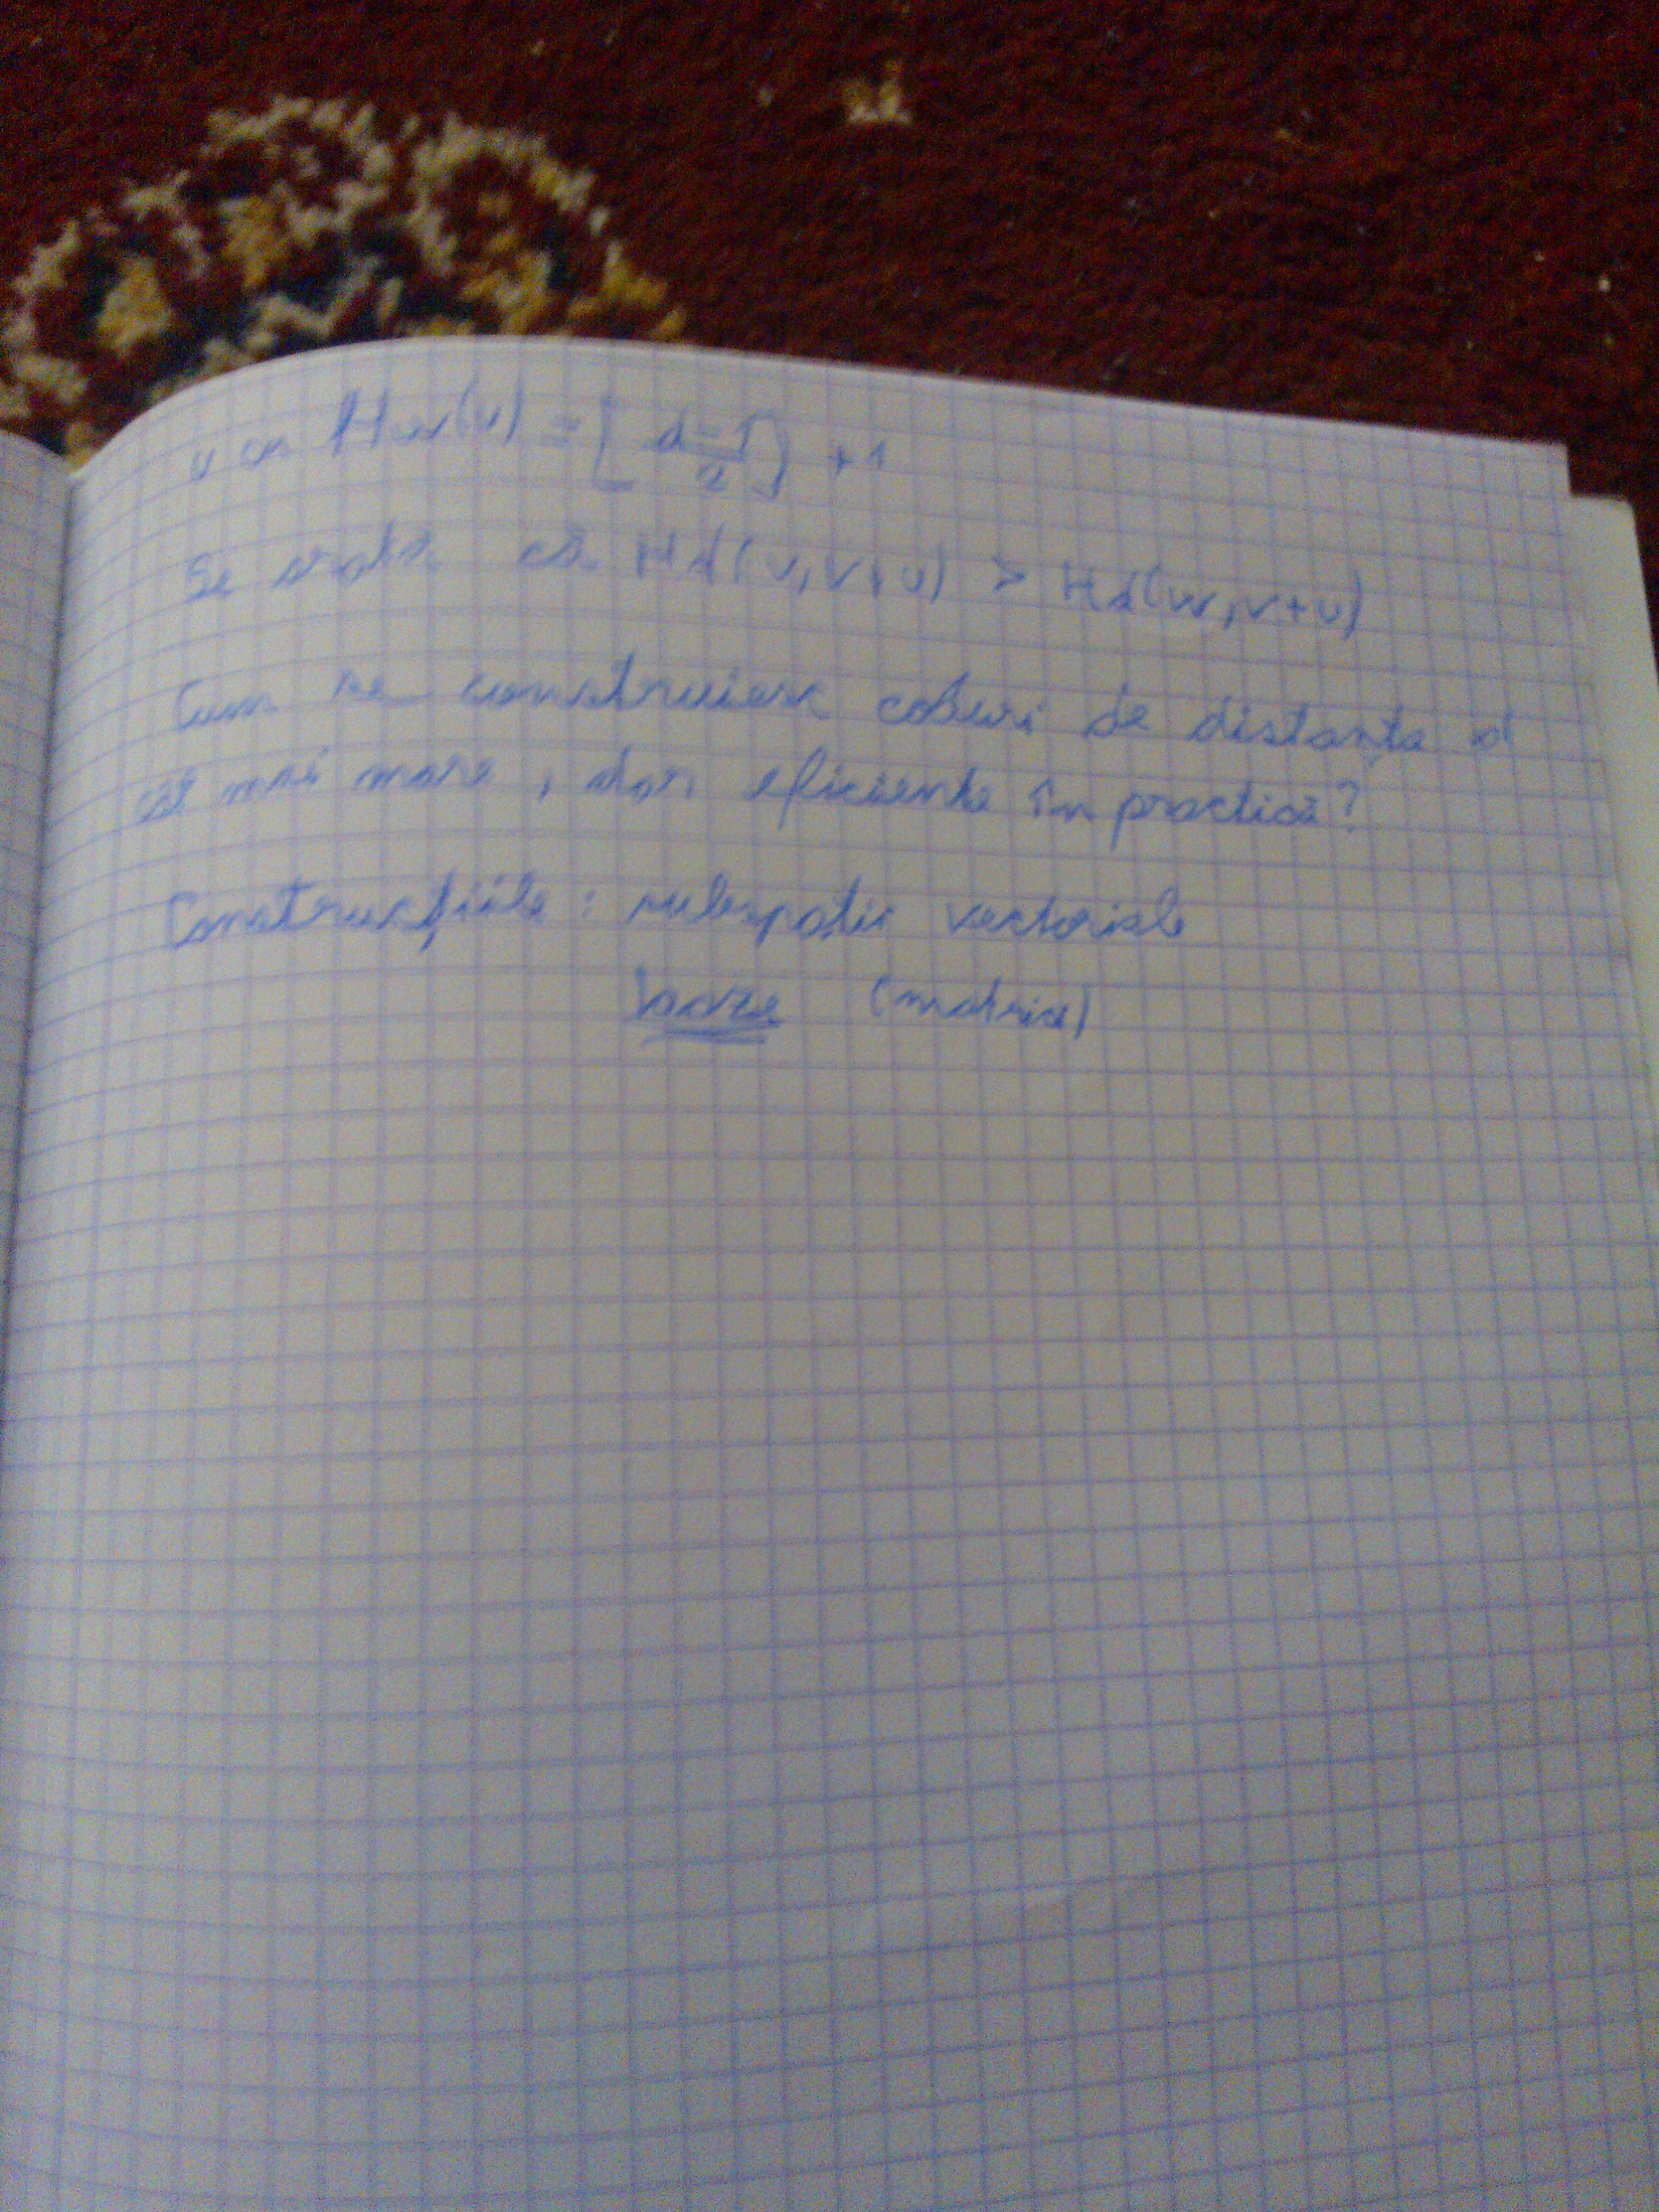 u cu Hw(u) = [d-1/2] + 1
Se arată că Hd(v, v+u) > Hd(w, v+u)
Cum se construiesc coduri de distanța d
cât mai mare, dar eficiente în practică?
Construcțiile: subspații vectoriale
baze (matrice)